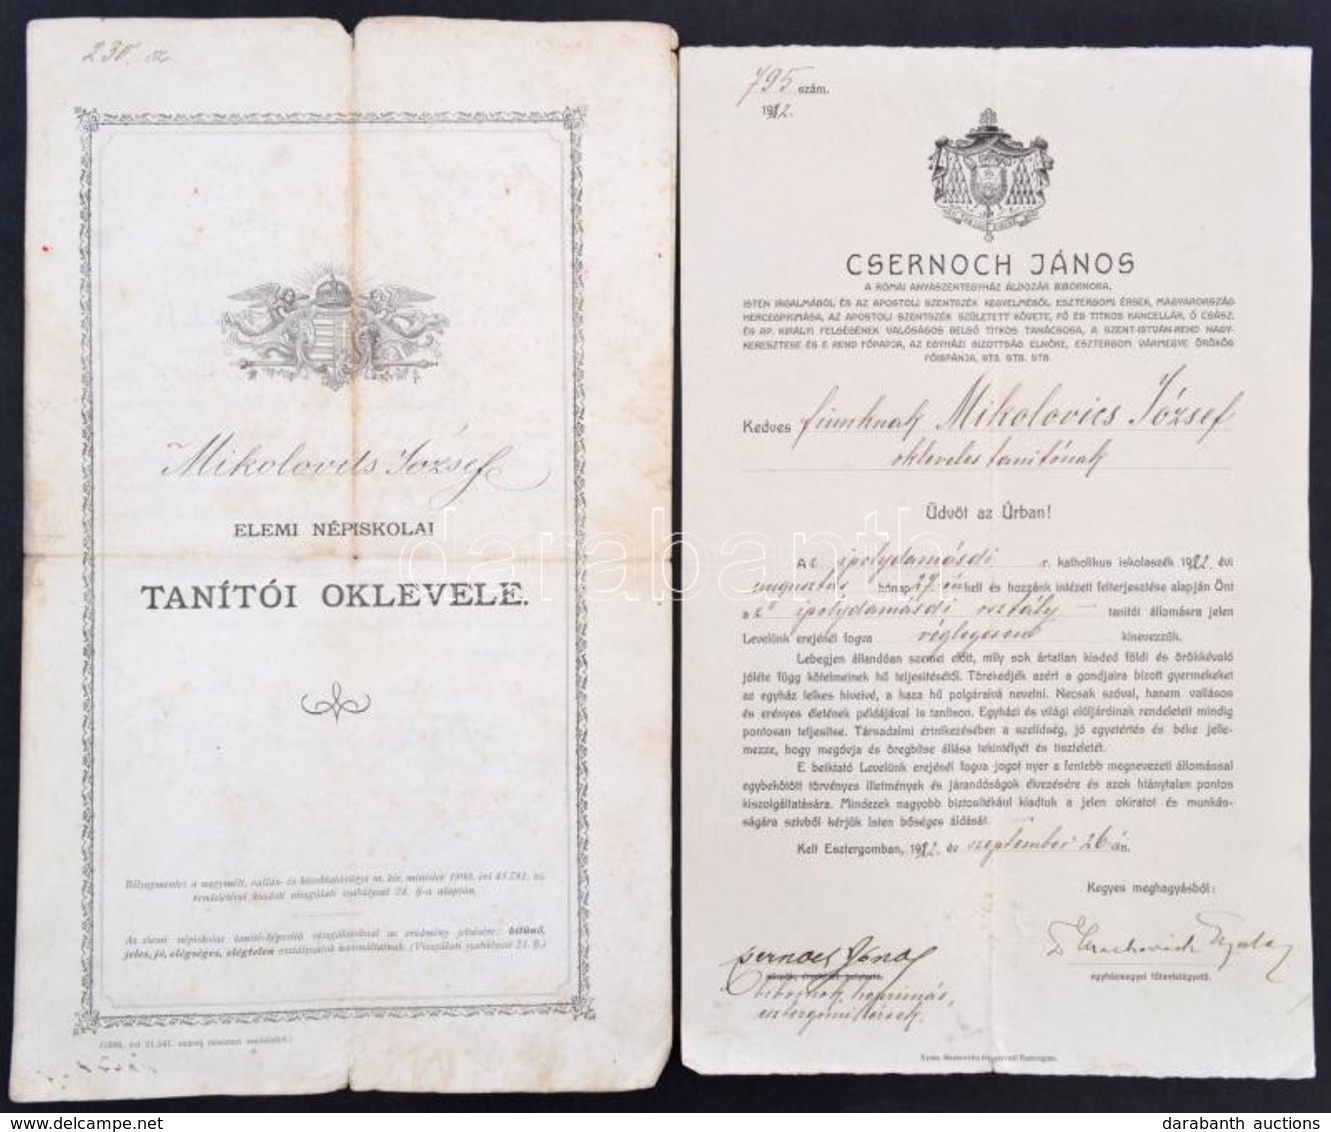 230. sz
Mikolovits József
ELEMI NÉPISKOLAI
TANÍTÓI OKLEVELE.
Bélyegmentes a nagymélt. vallás- és közoktatásügyi m. kir. minister 1900. évi 43.781. sz.
rendeletével kiadott vizsgálati szabályzat 24. §-a alapján.
Az elemi népiskolai tanító-képesítő vizsgálatoknál az eredmény jelzésére: kitünő,
jeles, jó, elégséges, elégtelen osztályzatok használtatnak. (Vizsgálati szabályzat 21. §.)
795 szám.
1922.
CSERNOCH JÁNOS
A RÓMAI ANYASZENTEGYHÁZ ÁLDOZÁR BIBORNOKA,
ISTEN IRGALMÁBÓL ÉS AZ APOSTOLI SZENTSZÉK KEGYELMÉBŐL ESZTERGOMI ÉRSEK, MAGYARORSZÁG
HERCEGPRIMÁSA, AZ APOSTOLI SZENTSZÉK SZÜLETETT KÖVETE, FŐ ÉS TITKOS KANCELLÁR, Ő CSÁSZ.
ÉS AP. KIRÁLYI FELSÉGÉNEK VALÓSÁGOS BELSŐ TITKOS TANÁCSOSA, A SZENT-ISTVÁN-REND NAGY-
KERESZTESE ÉS E REND FŐPAPJA, AZ EGYHÁZI BIZOTTSÁG ELNÖKE, ESZTERGOM VÁRMEGYE ÖRÖKÖS
FŐISPÁNJA, STB. STB. STB.
Kedves fiunknak Mikolovics József
okleveles tanítónak
Üdvöt az Úrban!
Az ipolydamásdi r. katholikus iskolaszék 1922. évi
augusztus hónap 27.-én kelt és hozzánk intézett felterjesztése alapján Önt
az ipolydamásdi osztály- tanítói állomásra jelen
Levelünk erejénél fogva véglegesen kinevezzük.
Lebegjen állandóan szemei előtt, mily sok ártatlan kisded földi és örökkévaló
jóléte függ kötelmeinek hű teljesítésétől. Törekedjék azért a gondjaira bizott gyermekeket
az egyház lelkes híveivé, a haza hű polgáraivá nevelni. Necsak szóval, hanem vallásos
és erényes életének példájával is tanítson. Egyházi és világi előljáróinak rendeleteit mindig
pontosan teljesítse. Társadalmi érintkezésében a szelidség, jó egyetértés és béke jelle-
mezze, hogy megóvja és öregbítse állása tekintélyét és tiszteletét.
E beiktató Levelünk erejénél fogva jogot nyer a fentebb megnevezett állomással
egybekötött törvényes illetmények és járandóságok élvezésére és azok hiánytalan pontos
kiszolgáltatására. Mindezek nagyobb biztosítékául kiadtuk a jelen okiratot és munkás-
ságára szivből kérjük Isten bőséges áldását.
Kelt Esztergomban, 1922. év szeptember 26-án.
Kegyes meghagyásból:
Csernoch János
bibornok, hgprimás,
esztergomi érsek.
egyházmegyei főtanfelügyelő.
darabanth
darabanth auctions